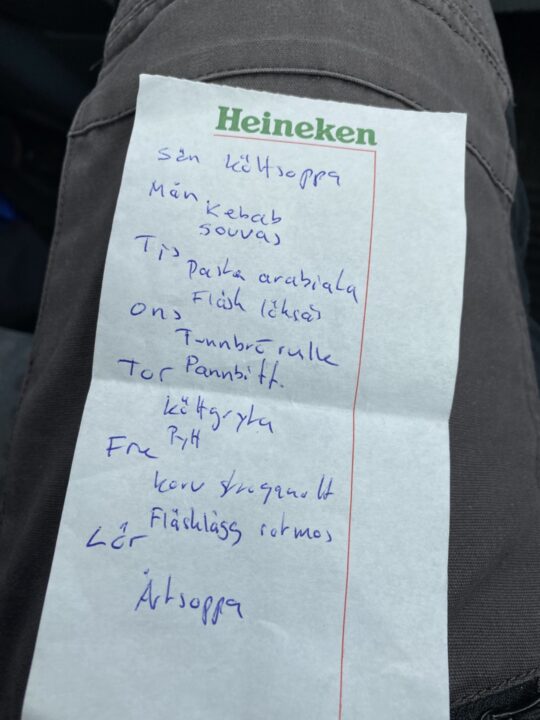 Heineken
Sön köttsoppa
Mån
Kebab
souvas
Tis
Pasta arabiata
Fläsk löksås
Ons
Tunnbrö rulle
Pannbiff.
Tor
köttgryta
Pytt
Fre
korv stroganoff
Fläsklägg rotmos
Lör
Ärtsoppa